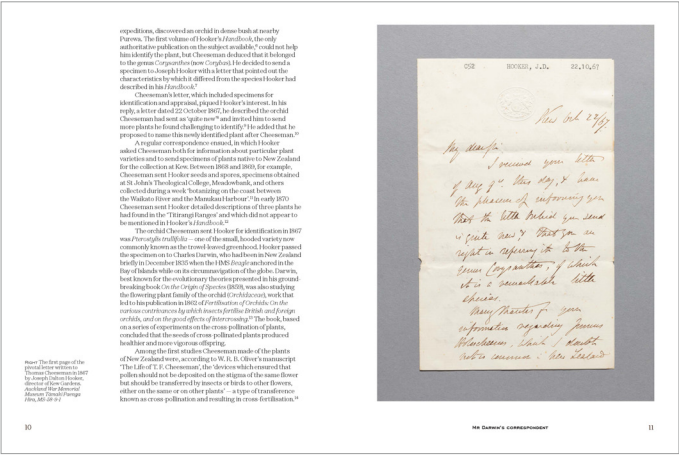 expeditions, discovered an orchid in dense bush at nearby
Purewa. The first volume of Hooker's Handbook, the only
authoritative publication on the subject available,⁶ could not help
him identify the plant, but Cheeseman deduced that it belonged
to the genus Corysanthes (now Corybas). He decided to send a
specimen to Joseph Hooker with a letter that pointed out the
characteristics by which it differed from the species Hooker had
described in his Handbook.⁷
Cheeseman's letter, which included specimens for
identification and appraisal, piqued Hooker's interest. In his
reply, a letter dated 22 October 1867, he described the orchid
Cheeseman had sent as 'quite new'⁸ and invited him to send
more plants he found challenging to identify.⁹ He added that he
proposed to name this newly identified plant after Cheeseman.¹⁰
A regular correspondence ensued, in which Hooker
asked Cheeseman both for information about particular plant
varieties and to send specimens of plants native to New Zealand
for the collection at Kew. Between 1868 and 1869, for example,
Cheeseman sent Hooker seeds and spores, specimens obtained
at St John's Theological College, Meadowbank, and others
collected during a week 'botanizing on the coast between
the Waikato River and the Manukau harbour'.¹¹ In early 1870
Cheeseman sent Hooker detailed descriptions of three plants he
had found in the 'Titirangi Ranges' and which did not appear to
be mentioned in Hooker's Handbook.¹²
The orchid Cheeseman sent Hooker for identification in 1867
was Pterostylis trullifolia — one of the small, hooded variety now
commonly known as the trowel-leaved greenhood. Hooker passed
the specimen on to Charles Darwin, who had been in New Zealand
briefly in December 1835 when the HMS Beagle anchored in the
Bay of Islands while on its circumnavigation of the globe. Darwin,
best known for the evolutionary theories presented in his ground-
breaking book On the Origin of Species (1859), was also studying
the flowering plant family of the orchid (Orchidaceae), work that
led to his publication in 1862 of Fertilisation of Orchids: On the
various contrivances by which insects fertilise British and foreign
orchids, and on the good effects of intercrossing.¹³ The book, based
on a series of experiments on the cross-pollination of plants,
concluded that the seeds of cross-pollinated plants produced
healthier and more vigorous offspring.
Among the first studies Cheeseman made of the plants
of New Zealand were, according to W. R. B. Oliver's manuscript
'The Life of T. F. Cheeseman', the 'devices which ensured that
pollen should not be deposited on the stigma of the same flower
but should be transferred by insects or birds to other flowers,
either on the same or on other plants' — a type of transference
known as cross-pollination and resulting in cross-fertilisation.¹⁴
RIGHT The first page of the
pivotal letter written to
Thomas Cheeseman in 1867
by Joseph Dalton Hooker,
director of Kew Gardens.
Auckland War Memorial
Museum Tāmaki Paenga
Hira, MS-58-9-1
10
HOOKER, J.D. 22.10.67
Kew Oct 22/67.
My dear Sir
I received your letter
of Aug 9th this day, & have
the pleasure of informing you
that the little Orchid you send
is quite new & that you are
right in referring it to the
genus Corysanthes, of which
it is a remarkable little
species.
Many thanks for your
information regarding
which I doubt
New Zealand
MR DARWIN'S CORRESPONDENT
11